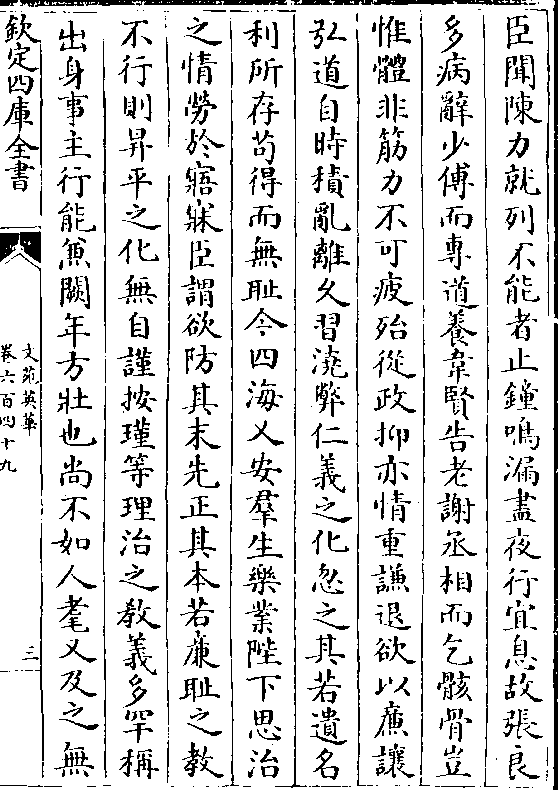 臣聞陳力就列不能者止鐘鳴漏盡夜行宜息故張良
多病辭少傅而專道養韋賢告老謝丞相而乞骸骨豈
惟體非筋力不可疲殆從政抑亦情重謙退欲以㢘讓
弘道自時積亂離久習澆弊仁義之化忽之其若遺名
利所存苟得而無耻今四海乂安羣生樂業陛下思治
之情勞於寤寐臣謂欲防其末先正其本若㢘耻之教
不行則昇平之化無自謹按瑾等理治之教義多罕稱
出身事主行能兼闕年方壯也尚不如人耄又及之無
欽定四庫全書
文苑英華
卷六百四十九
三